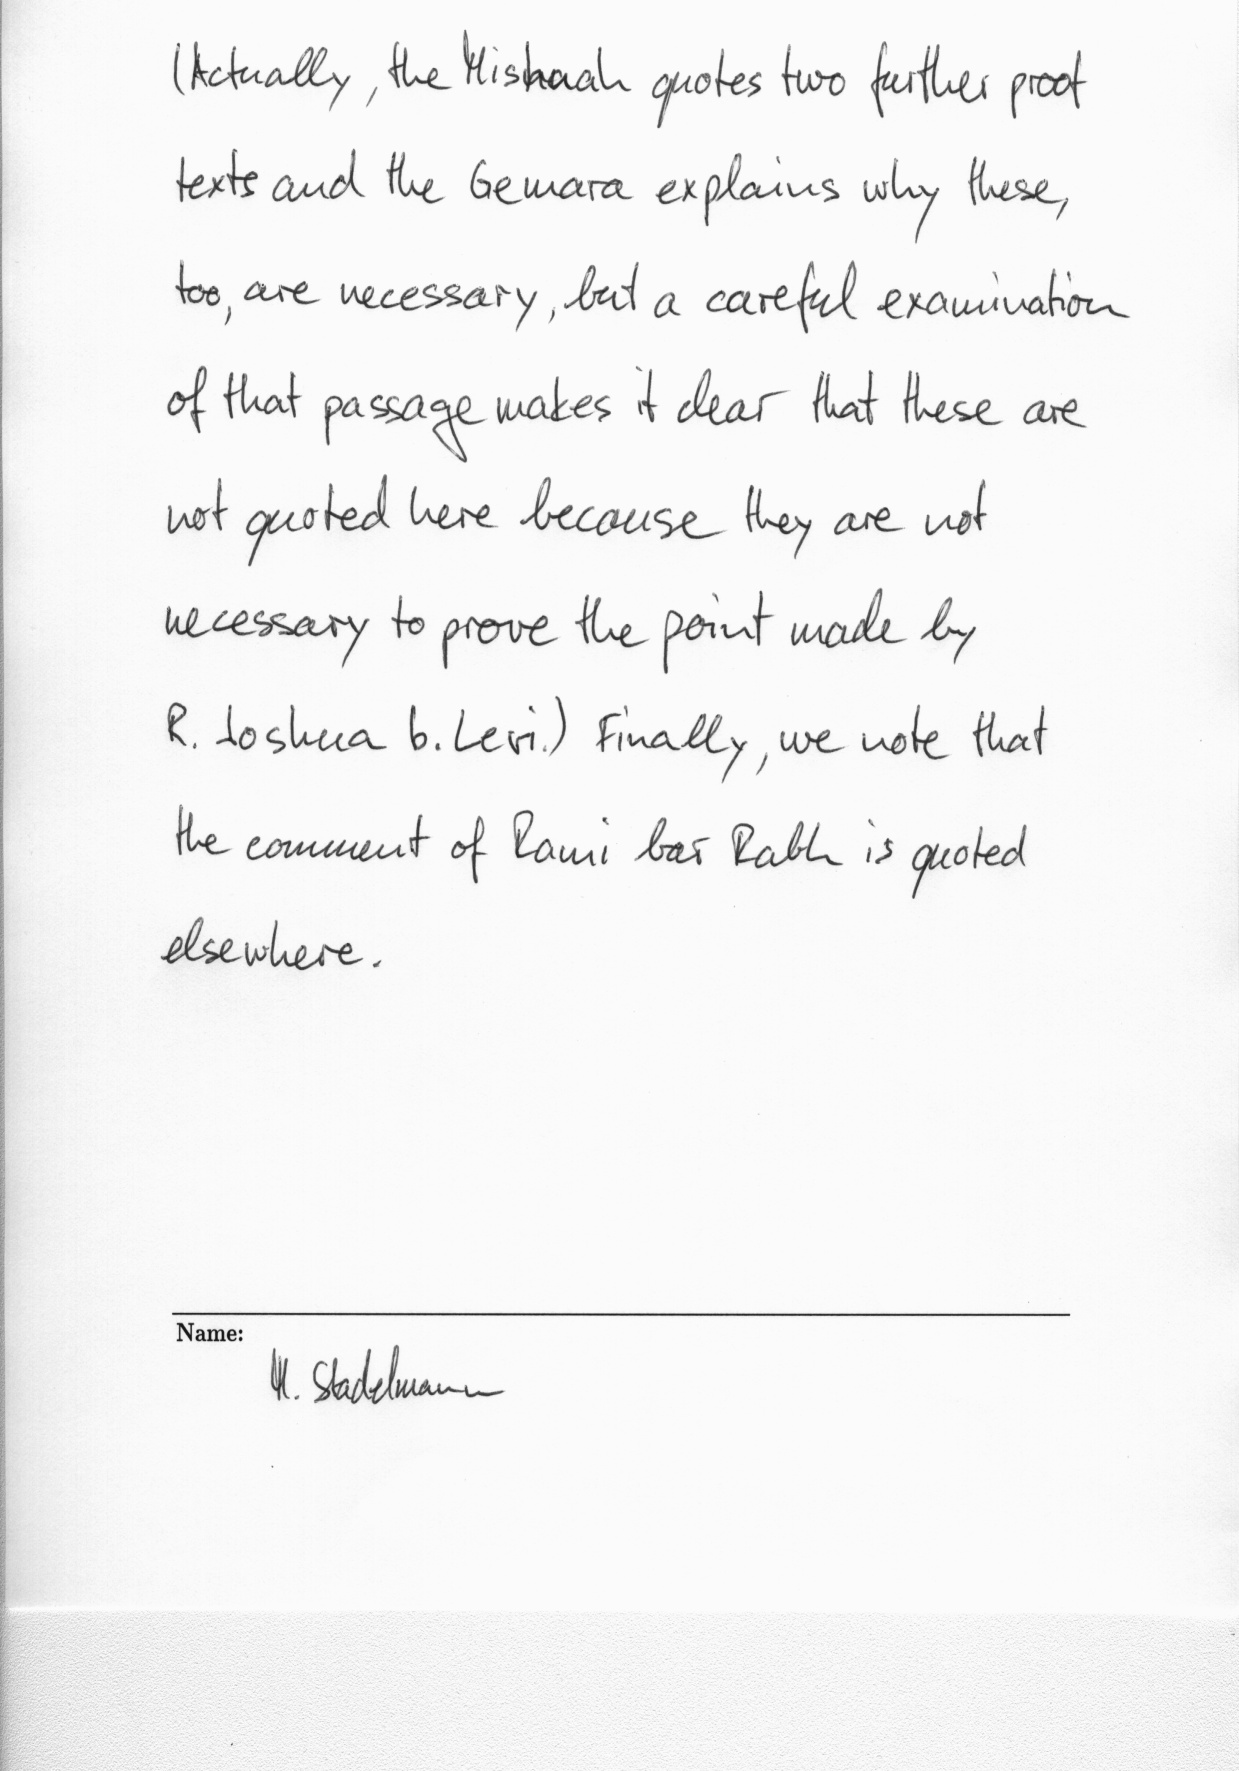 (Actually, the Mishnah quotes two further proof
texts and the Gemara explains why these,
too, are necessary, but a careful examination
of that passage makes it clear that these are
not quoted here because they are not
necessary to prove the point made by
R. Joshua b. Levi.) Finally, we note that
the comment of Rami bar Rabh is quoted
elsewhere.
Name:
M. Stadelmann